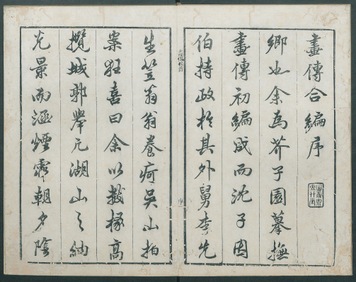 畫傳合編序
鄉也余為芥子園摹撫
畫傳初編成而沈子因
伯持政於其外舅李先
生笠翁翁養疴吳山拍
案狂喜曰余以數椽高
攬城郭舉凡湖山之納
光景而涵煙靄朝夕陰